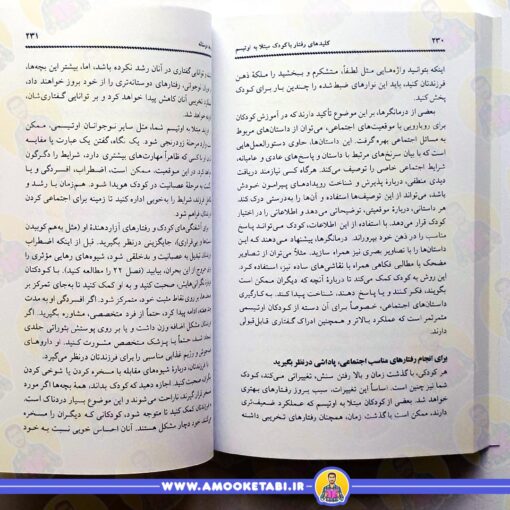 ۲۳۰
کلیدهای رفتار با کودک مبتلا به اوتیسم
اینکه بتوانید واژه‌هایی مثل لطفاً، متشکرم و ببخشید را ملکهٔ ذهن
فرزندتان کنید، باید این نوارهای ضبط شده را چندین بار برای کودک
پخش کنید.
بعضی از درمانگرها، بر این موضوع تأکید دارند که در آموزش کودکان
برای رویارویی با موقعیت‌های اجتماعی، می‌توان از داستان‌های مربوط
به مسائل اجتماعی بهره گرفت. این داستان‌ها، حاوی دستورالعمل‌هایی
است که با بیان سرنخ‌های مرتبط با داستان و پاسخ‌های عادی و عامیانه،
شرایط اجتماعی خاصی را توصیف می‌کند. هرگاه کسی نیازمند دریافت
دیدی منطقی، دربارهٔ پذیرش و شناخت رویدادهای پیرامون خودش
باشد، می‌تواند از این داستان‌ها استفاده کند و آن‌ها را به‌درستی درک کند.
هر داستانی، دربارهٔ موقعیتی، توضیحاتی می‌دهد و اطلاعاتی را در اختیار
کودک قرار می‌دهد. با استفاده از این اطلاعات، کودک می‌تواند پاسخ
مناسب را در ذهن خود بپروراند. درمانگرها، پیشنهاد می‌دهند که این
داستان‌ها را با تصاویر بصری نیز همراه سازید. مثلاً می‌توان از تصاویر
مضحک با مطالبی فکاهی همراه با نقاشی‌های ساده نیز، استفاده کرد.
این روش به کودک کمک می‌کند تا دربارهٔ آنچه که دیگران ممکن است
بگویند، فکر کنند و یا پاسخ دهند، شناخت پیدا کند. به کارگیری
داستان‌های اجتماعی، خصوصاً برای آن دسته از کودکان اوتیسمی
مثمرثمر است که عملکرد بالاتر و همچنین ادراک گفتاری قابل‌قبولی
دارند.
برای انجام رفتارهای مناسب اجتماعی، پاداشی درنظر بگیرید
هر کودکی، با گذشت زمان و بالا رفتن سنش، تغییراتی می‌کند، کودک
شما نیز چنین است. اساساً این تغییرات، سبب بروز رفتارهای بهتری
خواهد شد. بعضی از کودکان مبتلا به اوتیسم که عملکرد ضعیف‌تری
دارند، ممکن است با گذشت زمان، همچنان رفتارهای تخریبی داشته
۲۳۱
توانایی گفتاری در آنان رشد نکرده باشد، اما، بیشتر این بچه‌ها،
نوجوانی، رفتارهای دوستانه‌تری را از خود بروز خواهند داد،
تخریبی آنان کاهش پیدا خواهد کرد و بر توانایی گفتاری‌شان،
خواهد شد.
مبتلا به اوتیسم شما، مثل سایر نوجوانان اوتیسمی، ممکن
مرحلهٔ زودرنجی شود. یک نگاه، گفتن یک عبارت یا مقایسه
با کسی که ظاهراً مهارت‌های بیشتری دارد، شرایط را دگرگون
این موقعیت، ممکن است، اضطراب، افسردگی و یا
به مرحلهٔ عصبانیت در کودک هویدا شود. همزمان با رشد و
شرایط را به‌خوبی اداره کنید تا زمینه برای اجتماعی کردن
فراهم شود.
آشفتگی‌های کودک و رفتارهای آزاردهندهٔ او (مثل به‌هم کوبیدن
و بی‌قراری)، جایگزینی درنظر بگیرید. قبل از اینکه اضطراب
تبدیل به عصبانیت و بدخلقی شود، شیوه‌های رهایی مؤثری را
خروج از این بحران، بیابید (فصل ۲۲ را مطالعه کنید). با کودکتان
صحبت کنید و به او کمک کنید تا به‌جای تمرکز بر
بر روی نقاط مثبت خود، متمرکز شود. اگر افسردگی او به مدت
هفته، ادامه پیدا کرد، حتماً از فرد متخصصی، مشاوره بگیرید. اگر
مشکل اضافه وزن داشت و یا بر روی پوستش بثوراتی جلدی
حتماً با پزشک متخصص مشورت کنید. از داروهای
و رژیم غذایی مناسبی را برای فرزندتان درنظر می‌گیرد.
فرزندتان، دربارهٔ شیوه‌های مقابله با مسخره کردن یا شوخی کردن
صحبت کنید. اجازه دهید که کودک بداند، همهٔ بچه‌ها اگر مورد
قرار بگیرند، ناراحت می‌شوند و این موضوع بسیار دردناک است،
کمک کنید تا متوجه شود، کودکانی که دیگران را مسخره
خود دچار مشکل هستند. آنان احساس خوبی نسبت به خود
WWW.AMOOKETABI.IR